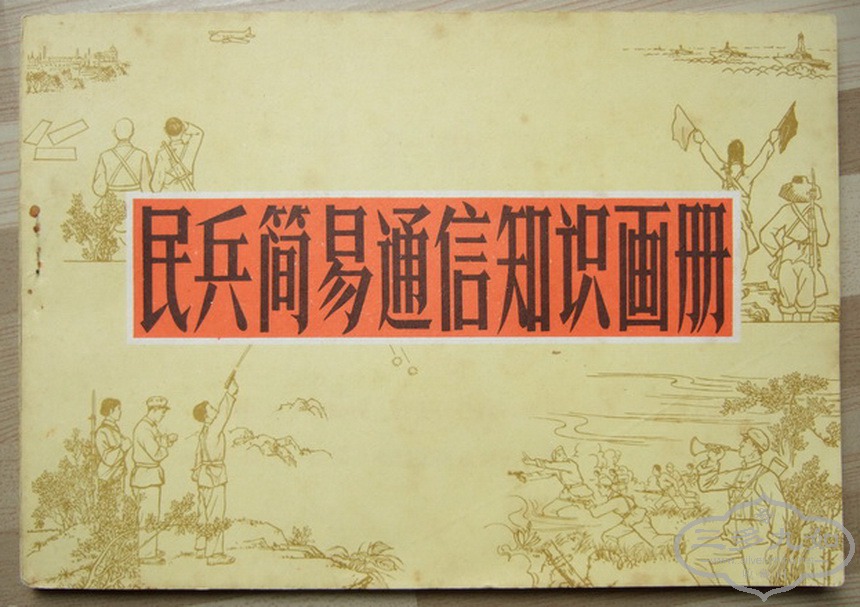 民兵简易通信知识画册